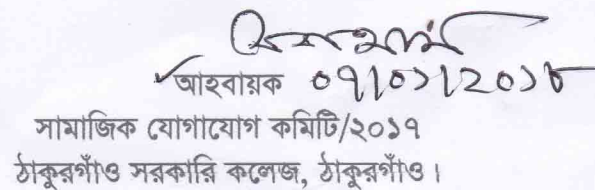 আহবায়ক ০৭/০১/২০১৮
সামাজিক যোগাযোগ কমিটি/২০১৭
ঠাকুরগাঁও সরকারি কলেজ, ঠাকুরগাঁও।